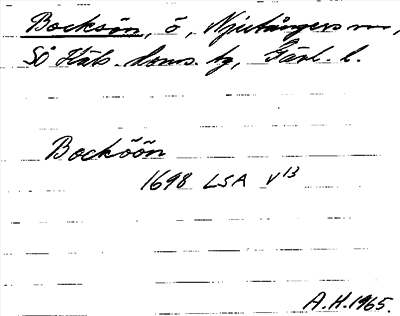 Bocksön, ö, Njutångers sn,
Sö Häls. doms. tg, Gävl. l.
Bocköön
1698 LSA V 13
A.H. 1965.